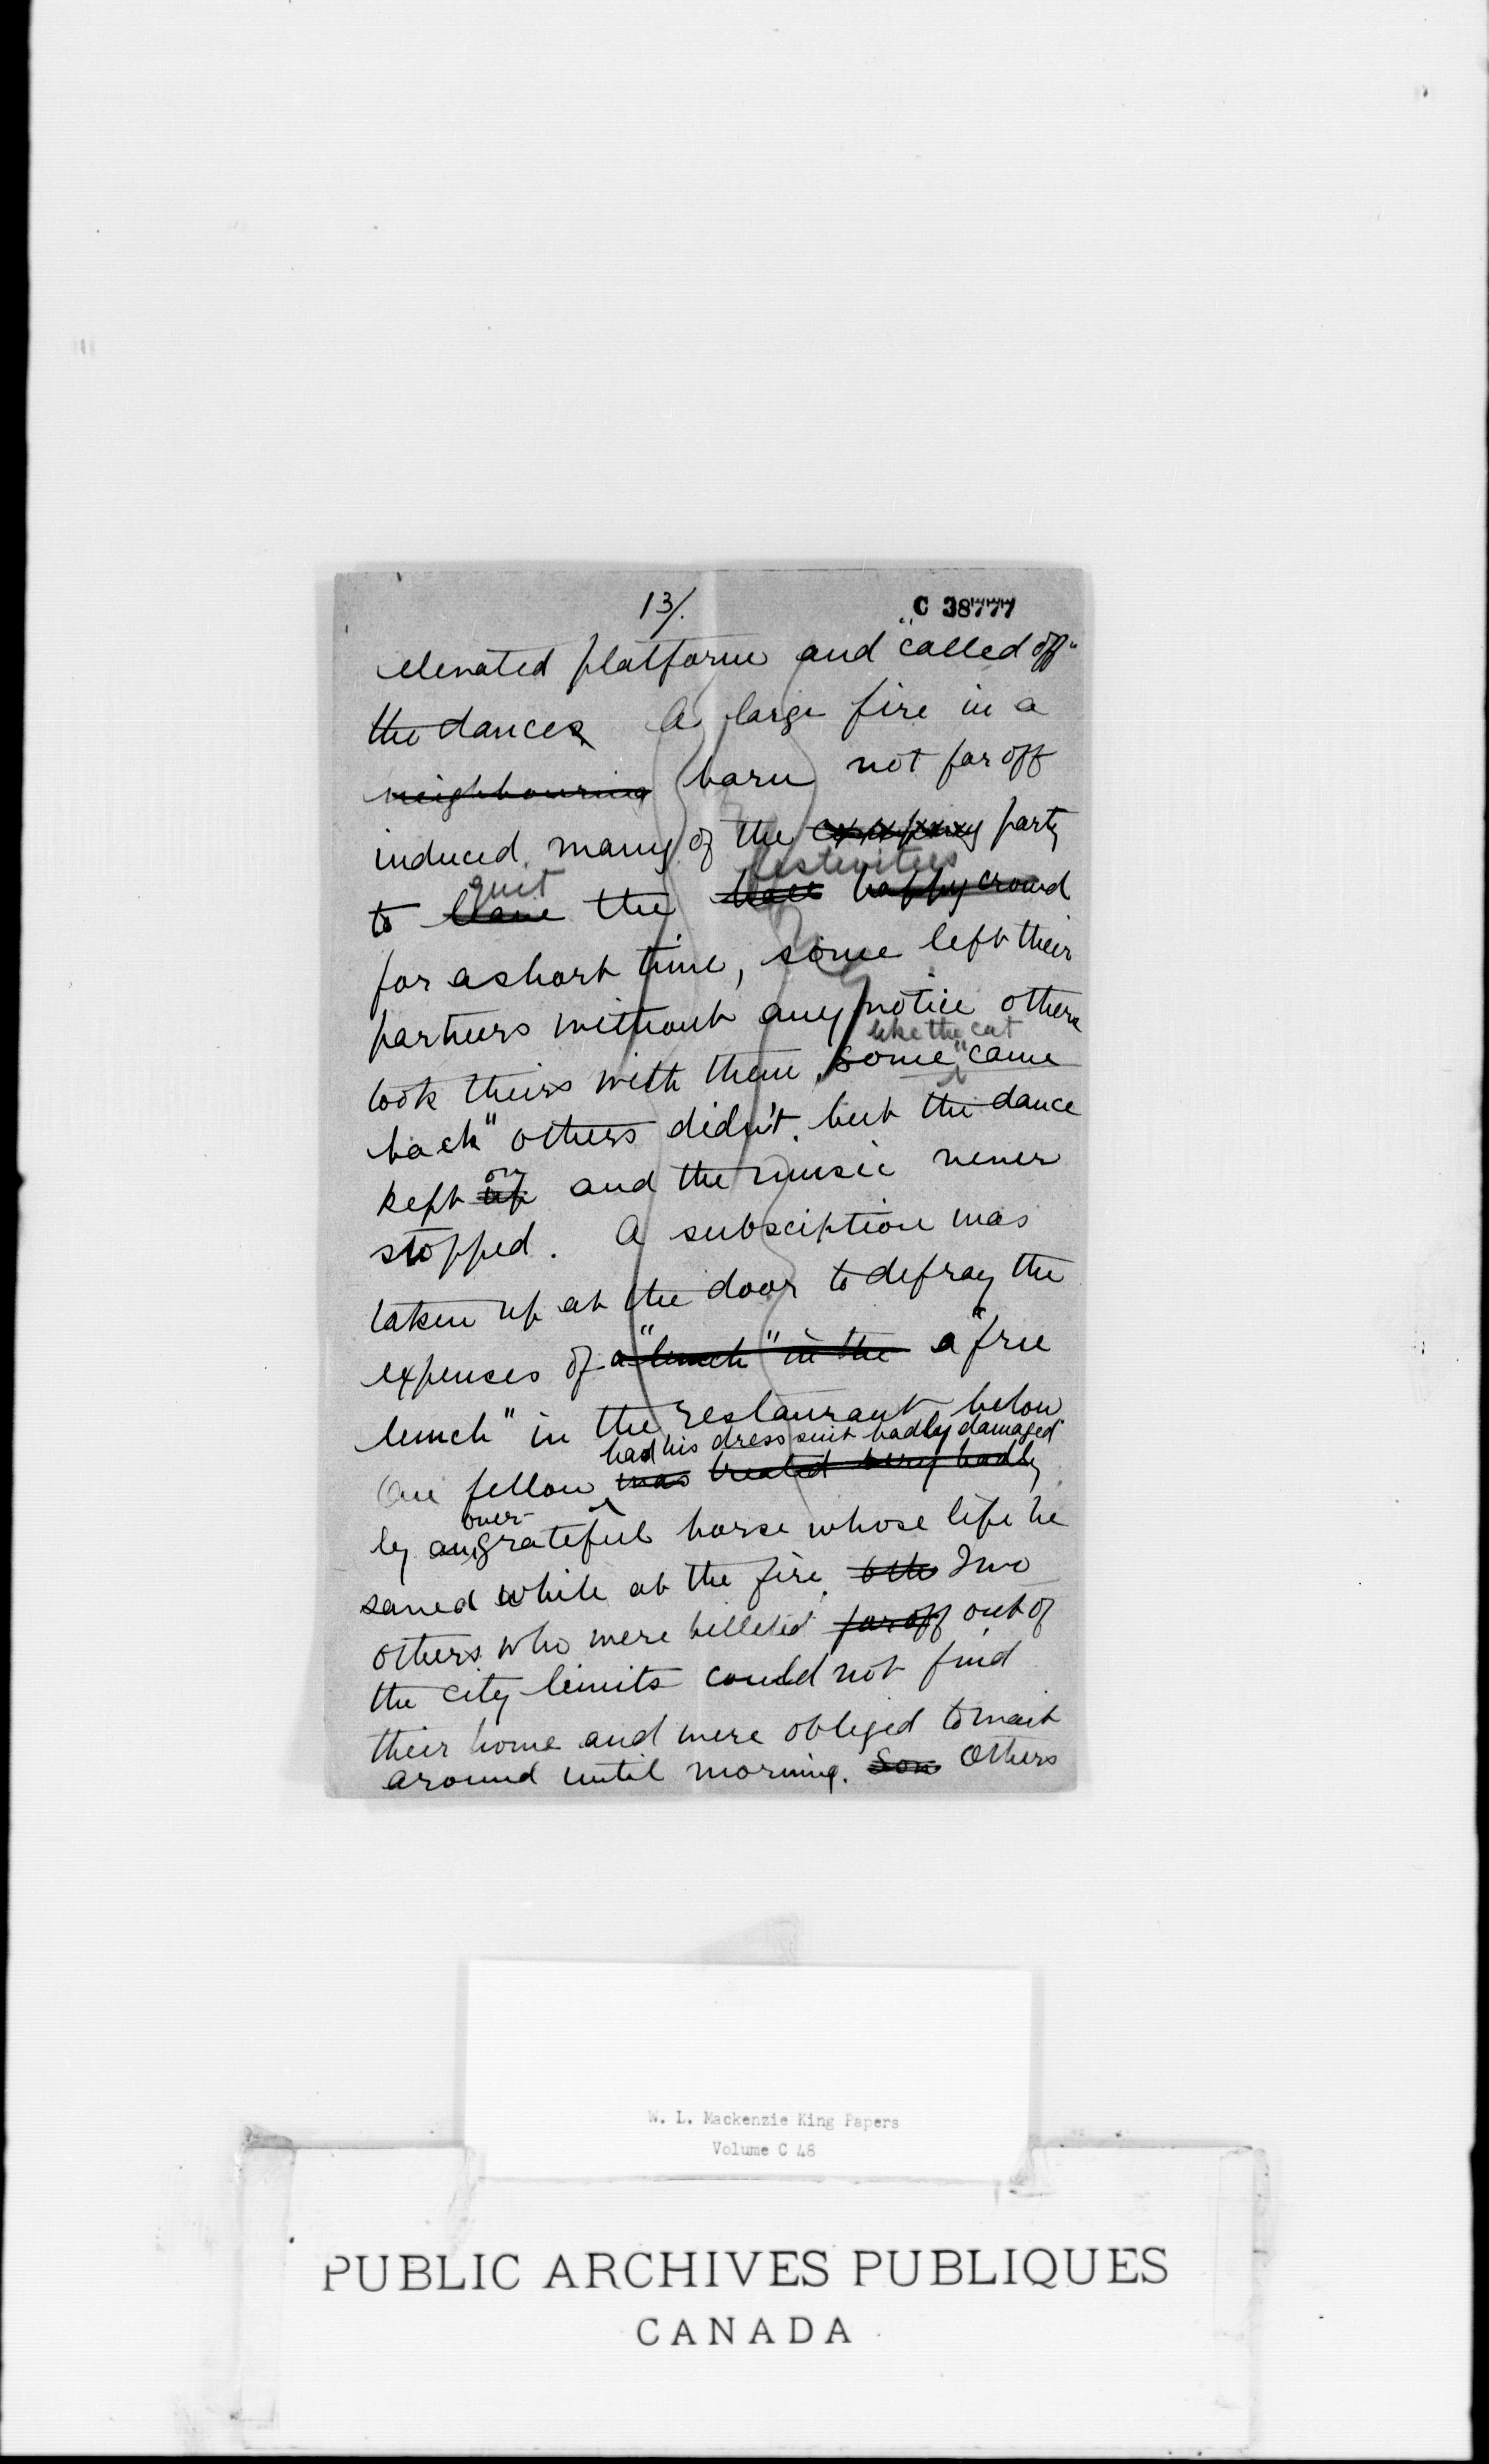 13/.
C 38777
elevated platform and "called off"
the dances A large fire in a
neighbouring barn not far off
induced many of the company party
festivities
quit
to leave the ball happy crowd
for a short time, some left their
partners without any notice others
like the cat
took theirs with them, some "came
back" others didn't, but the dance
on
kept up and the music never
stopped. A subsciption was
taken up at the door to defray the
expenses of a "lunch" in the a "free
lunch" in the restaurant below
had his dress suit badly damaged
One fellow was treated very badly
over-
by an grateful horse whose life he
saved while at the fire. oth Two
others who were billeted far off out of
the city limits could not find
their home and were obliged to wait
around until morning. Som Others
W. L. Mackenzie King Papers
Volume C 48
PUBLIC ARCHIVES PUBLIQUES
CANADA